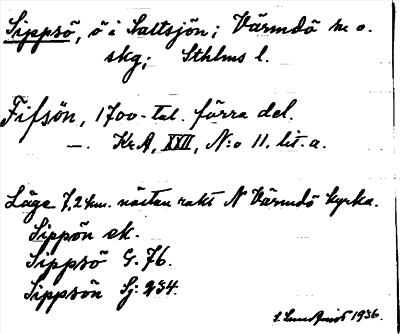 Sippsö, ö i Saltsjön; Värmdö sn o.
skg; Sthlms l.
Fifsön, 1700-tal. förra del.
—. KrA, XXII, N:o 11. lit. a.
Läge 7,2 km. nästan rakt N Värmdö kyrka.
Sippön ek.
Sippsö G. 76.
Sippsön Sj: 934.
1936.